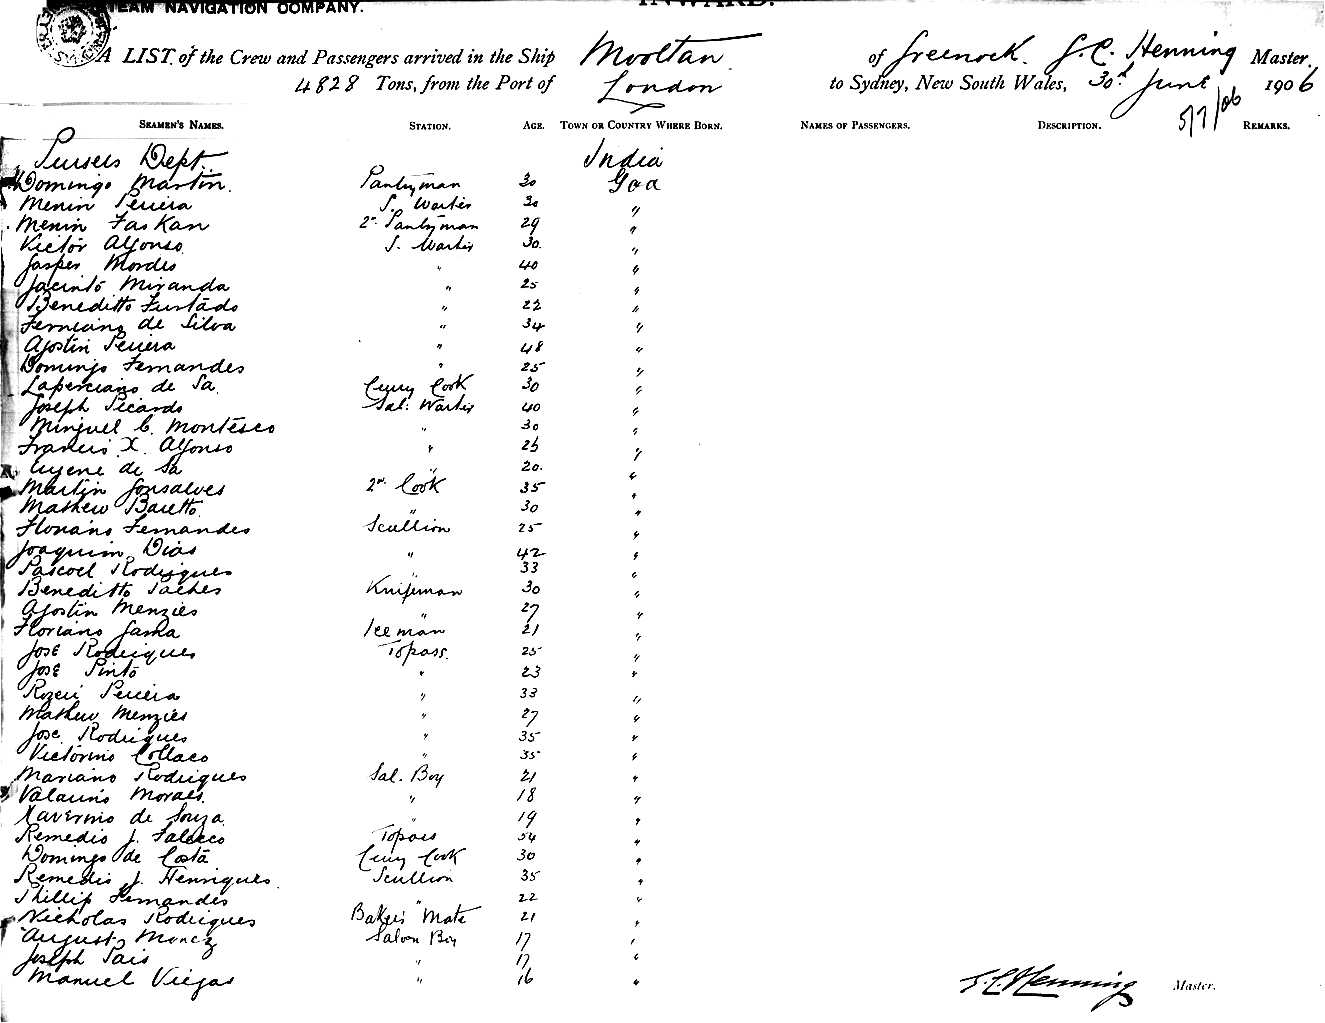 TEAM NAVIGATION COMPANY. INWARD.
A LIST of the Crew and Passengers arrived in the Ship Mooltan of Greenock. J. C. Henning Master.
4828 Tons, from the Port of London to Sydney, New South Wales, 30th June 1906
5/7/06
SEAMEN'S NAMES. STATION. AGE. TOWN OR COUNTRY WHERE BORN. NAMES OF PASSENGERS. DESCRIPTION. REMARKS.
Pursers Dept. India
Domingo Martin. Pantryman 30 Goa
Menin Pereira S. Waiter 30 "
Menin 2nd Pantryman 29 "
Victor Alfonso S. Waiter 30. "
Jasper Mordes " 40 "
Jacinto Miranda " 25 "
Beneditto Furtado " 22 "
de Silva " 34 "
Agostin Pereira " 48 "
Domingo Fernandes " 25 "
de Sa Curry Cook 30 "
Joseph Picardo Sal: Waiter 40 "
Minguel C. Montesco " 30 "
Francis X. Alfonso " 26 "
Eugene de Sa " 20. "
Martin Gonsalves 2nd Cook 35 "
Mathew Baretto " 30 "
Floriano Fernandes Scullion 25 "
Joaquim Dias " 42 "
Pascoel Rodrigues 33 "
Beneditto Knifeman 30 "
Agostin Menzies " 27 "
Floriano Gama Iceman 21 "
José Rodrigues Topass. 25 "
José Pinto " 23 "
Pereira " 33 "
Mathew Menzies " 27 "
Jose Rodrigues " 35 "
Victorino Collaco " 35 "
Mariano Rodrigues Sal. Boy 21 "
Moraes. " 18 "
Xavermo de Souza " 19 "
Remedio J. Topass 54 "
Domingo de Costa Curry Cook 30 "
Remedio J. Henriques Scullion 35 "
Phillip Fernandes " 22 "
Nicholas Rodrigues Baker's Mate 21 "
August Saloon Boy 17 "
Joseph Pais " 17 "
Manuel Viegas " 16 "
J. C. Henning Master.